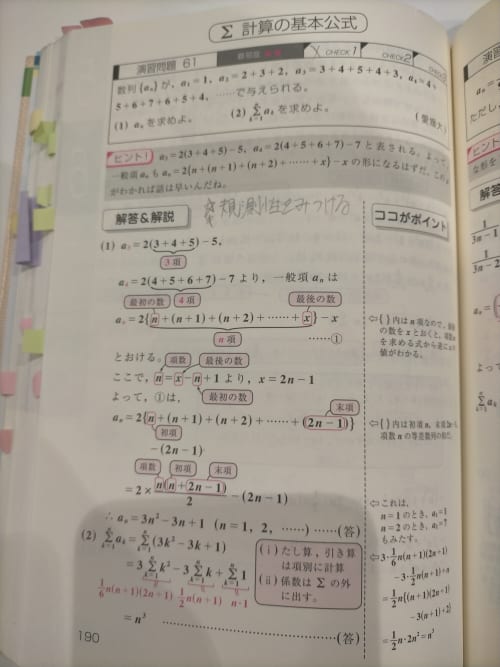 Σ 計算の基本公式
演習問題 61
CHECK1
CHECK2
数列{aₙ}が, a₁=1, a₂=2+3+2, a₃=3+4+5+4+3, a₄=4+
5+6+7+6+5+4, ……で与えられる。
(1) aₙを求めよ。 (2) Σₖ₌₁ⁿ aₖを求めよ。 (愛媛大)
ヒント!
a₃=2(3+4+5)-5, a₄=2(4+5+6+7)-7 と表される。よって,
一般項 aₙ も aₙ=2{n+(n+1)+(n+2)+……+x}-x の形になるはずだ。この x
がわかれば話は早いんだね。
解答&解説
☆規則性をみつける
ココがポイント
(1) a₃=2(3+4+5)-5,
3項
a₄=2(4+5+6+7)-7 より, 一般項 aₙ は
最初の数 4項 最後の数
aₙ=2{n+(n+1)+(n+2)+……+x}-x
n項 ……①
とおける。
項数 最後の数
ここで, n=x-n+1 より, x=2n-1
最初の数
よって, ①は,
末項
aₙ=2{n+(n+1)+(n+2)+……+(2n-1)}
初項
-(2n-1)
項数 初項 末項
=2×n(n+(2n-1))/2-(2n-1)
∴ aₙ=3n²-3n+1 (n=1, 2, ……) ……(答)
(2) Σₖ₌₁ⁿ aₖ=Σₖ₌₁ⁿ (3k²-3k+1)
=3Σₖ₌₁ⁿ k²-3Σₖ₌₁ⁿ k+Σₖ₌₁ⁿ 1
1/6 n(n+1)(2n+1) 1/2 n(n+1) n·1
(ⅰ)たし算, 引き算
は項別に計算
(ⅱ)係数は Σ の外
に出す。
=n³ ……(答)
⇦{ }内は n 項なので,
の数を x とおくと, 項数
を求める式から逆に
値がわかる。
⇦{ }内は初項 n, 末項 2n-1,
項数 n の等差数列の和だ。
⇦これは,
n=1 のとき, a₁=1
n=2 のとき, a₂=7
もみたす。
⇦3·1/6 n(n+1)(2n+1)
-3·1/2 n(n+1)+n
=1/2 n{(n+1)(2n+1)
-3(n+1)+2}
=1/2 n·2n²=n³
190
演習問題
ただし
ヒント
な形を
解答
1/(3n-1)
1/(3n-1)
aₙ=
よって
Σ aₖ